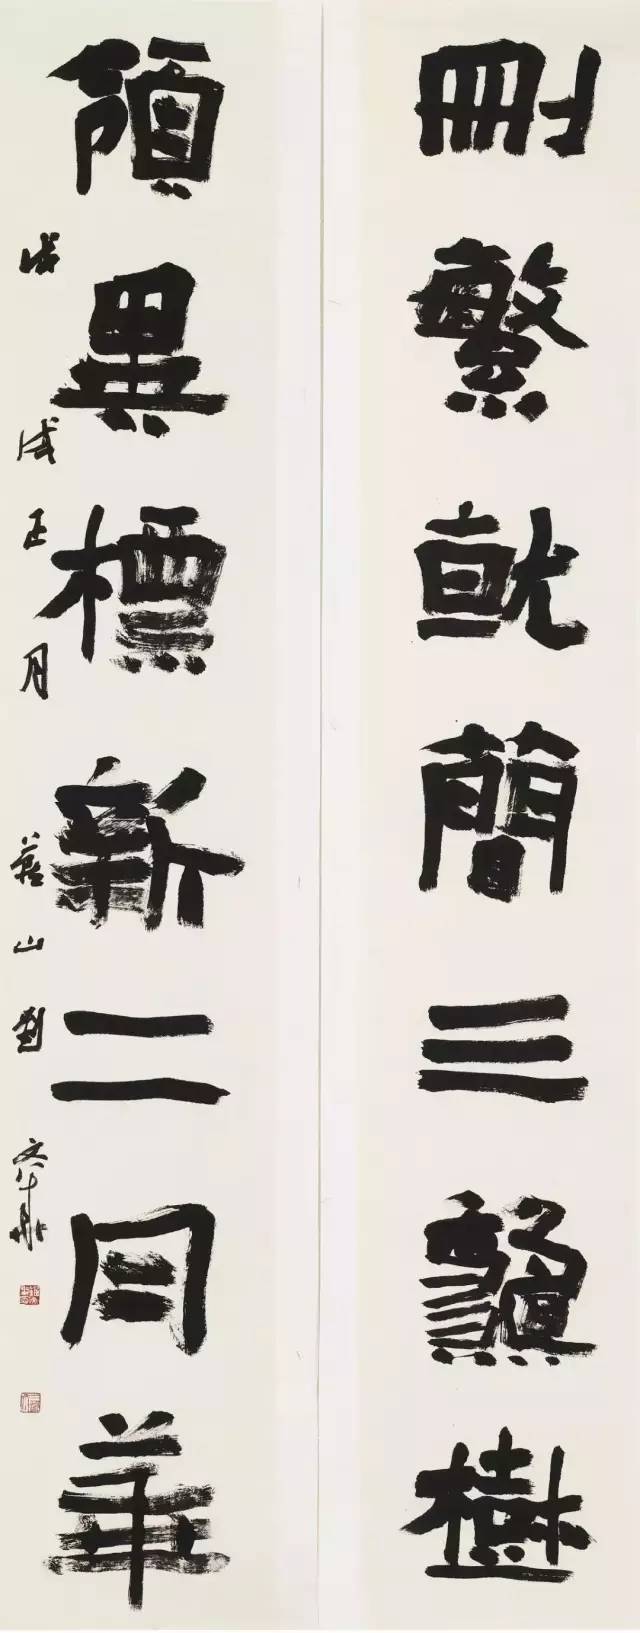 刪繁就簡三龝樹
領異標新二月華
戊戌正月燕山劉文華